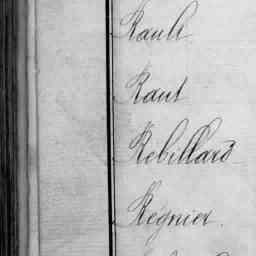 Rault
Raut
Rebillard
Régnier.